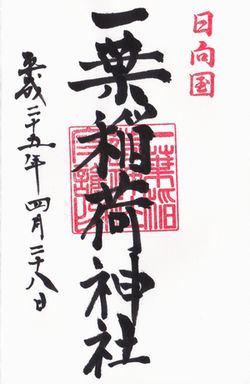 日向国
一葉稲荷神社
一葉稲
平成二十五年四月二十八日